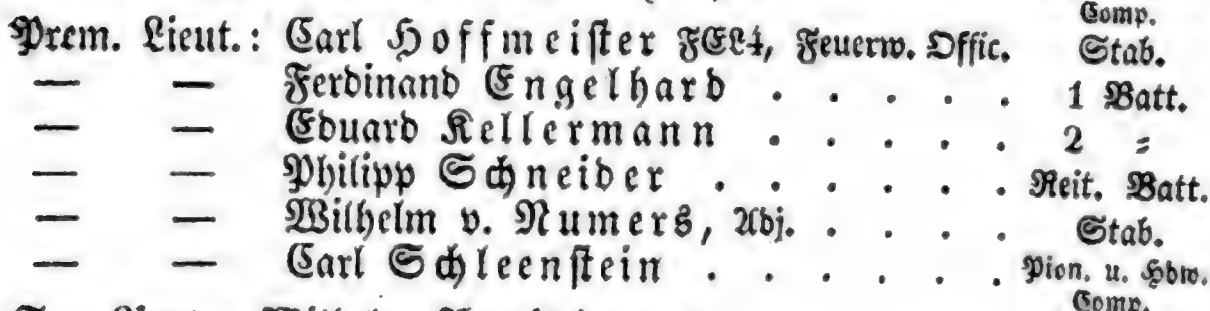 Comp.
Prem. Lieut.: Carl Hoffmeister FEL4, Feuerw. Offic. Stab.
— — Ferdinand Engelhard . . . . . 1 Batt.
— — Eduard Kellermann . . . . . 2 =
— — Philipp Schneider . . . . . . Reit. Batt.
— — Wilhelm v. Numers, Adj. . . . . Stab.
— — Carl Schleenstein . . . . . . Pion. u. Hdw.
Comp.